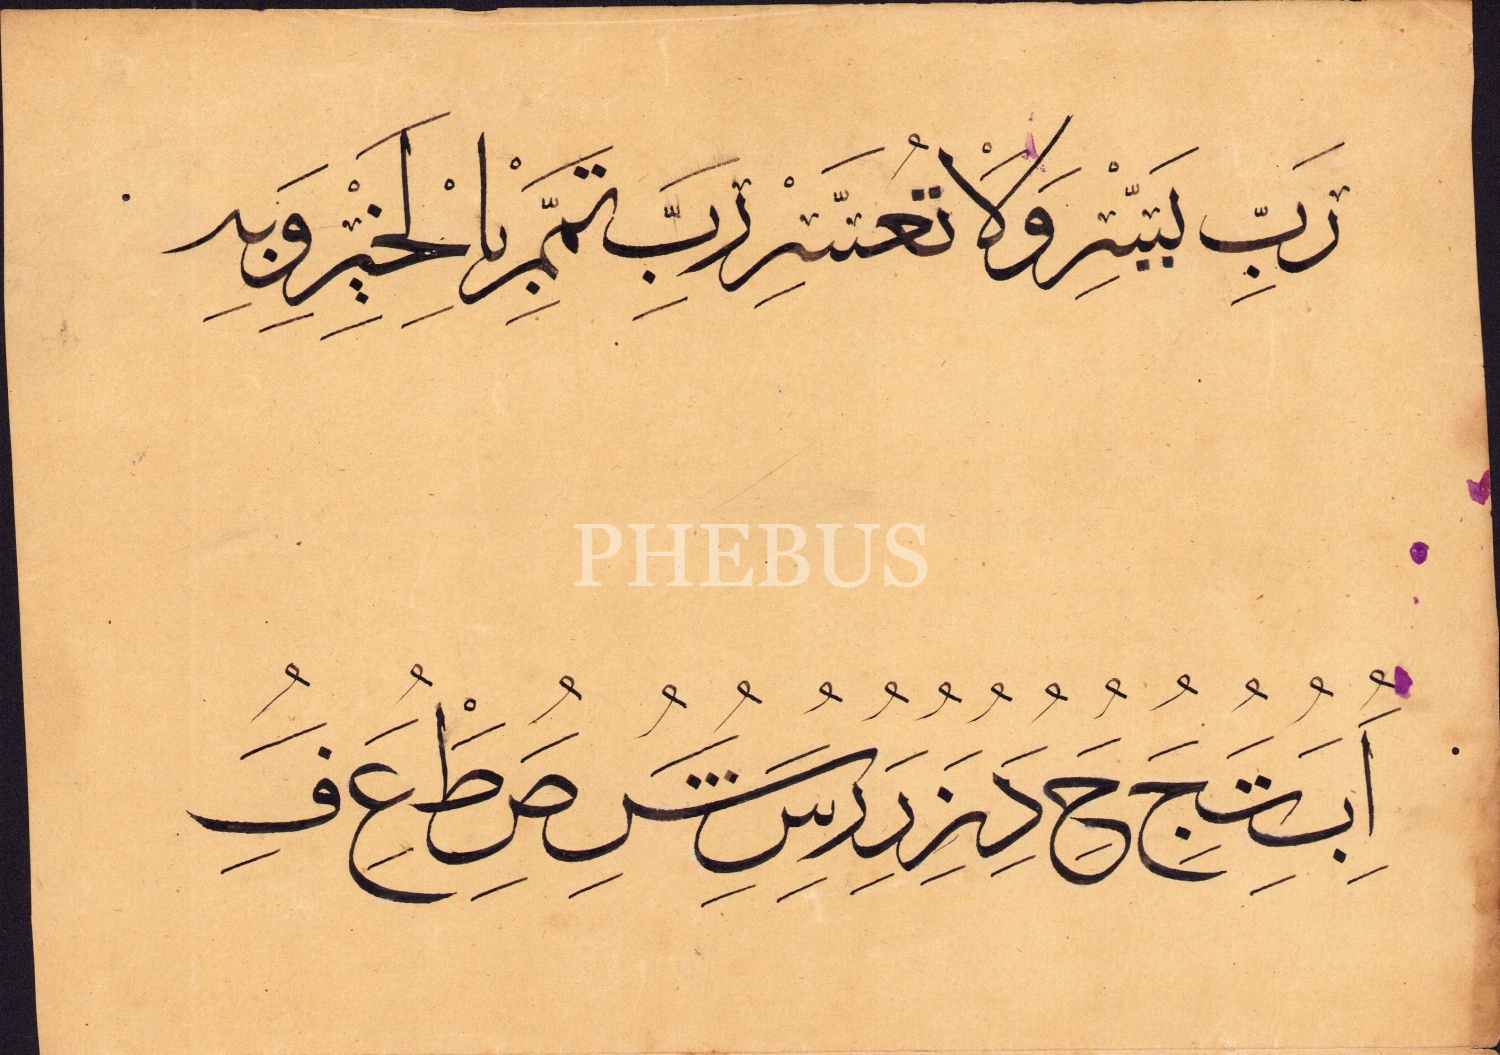 رَبِّ يَسِّرْ وَلَاْ تُعَسِّرْ رَبِّ تَمِّمْ بِالْخَيْرِ وَبِهِ
PHEBUS
ا ب ت ج ح د ز ر س ش ص ط ع ف